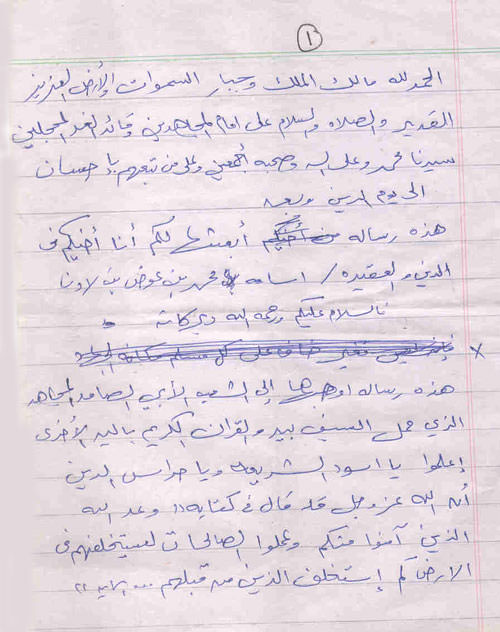 ١
الحمد لله مالك الملك وجبار السموات والأرض العزيز
القدير والصلاه والسلام على امام المجاهدين وقائد الغر المحجلين
سيدنا محمد وعلى اله وصحبه أجمعين وعلى من تبعهم بإحسان
الى يوم الدين وبعد
هذه رساله أبعثها لكم أنا أخيكم في
الدين والعقيده / اسامه محمد بن عوض بن لادن
فالسلام عليكم ورحمه الله وبركاته
هذه رساله اوجهها إلى الشعب الأبي الصامد المجاهد
الذي حمل السيف بيد والقران الكريم باليد الأخرى
إعلموا يا اسود الشريعه ويا حراس الدين
أن الله عز وجل قد قال في كتابه (( وعد الله
الذين آمنوا منكم وعملوا الصالحات ليستخلفنهم في
الارض كما إستخلف الذين من قبلهم ... الايه ))